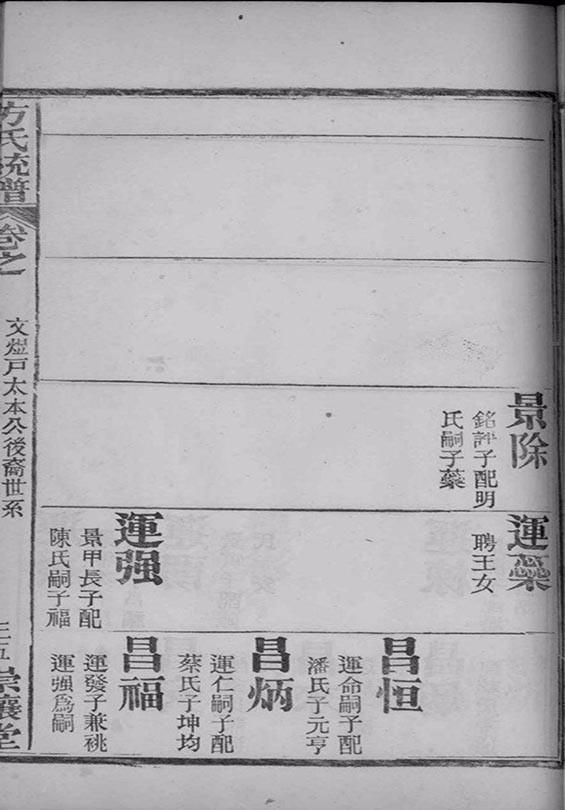 景除
銘評子配明
氏嗣子藥
運藥
聘王女
運强
景甲長子配
陳氏嗣子福
昌恒
運命嗣子配
潘氏子元亨
昌炳
運仁嗣子配
蔡氏子坤均
昌福
運發子兼祧
運强爲嗣
方氏統譜
卷之
文戶太本公後裔世系
崇讓堂